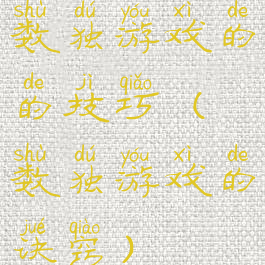 shù dú yóu xì de
数独游戏的
de jì qiǎo
的技巧（
shù dú yóu xì de
数独游戏的
jué qiào
诀窍）